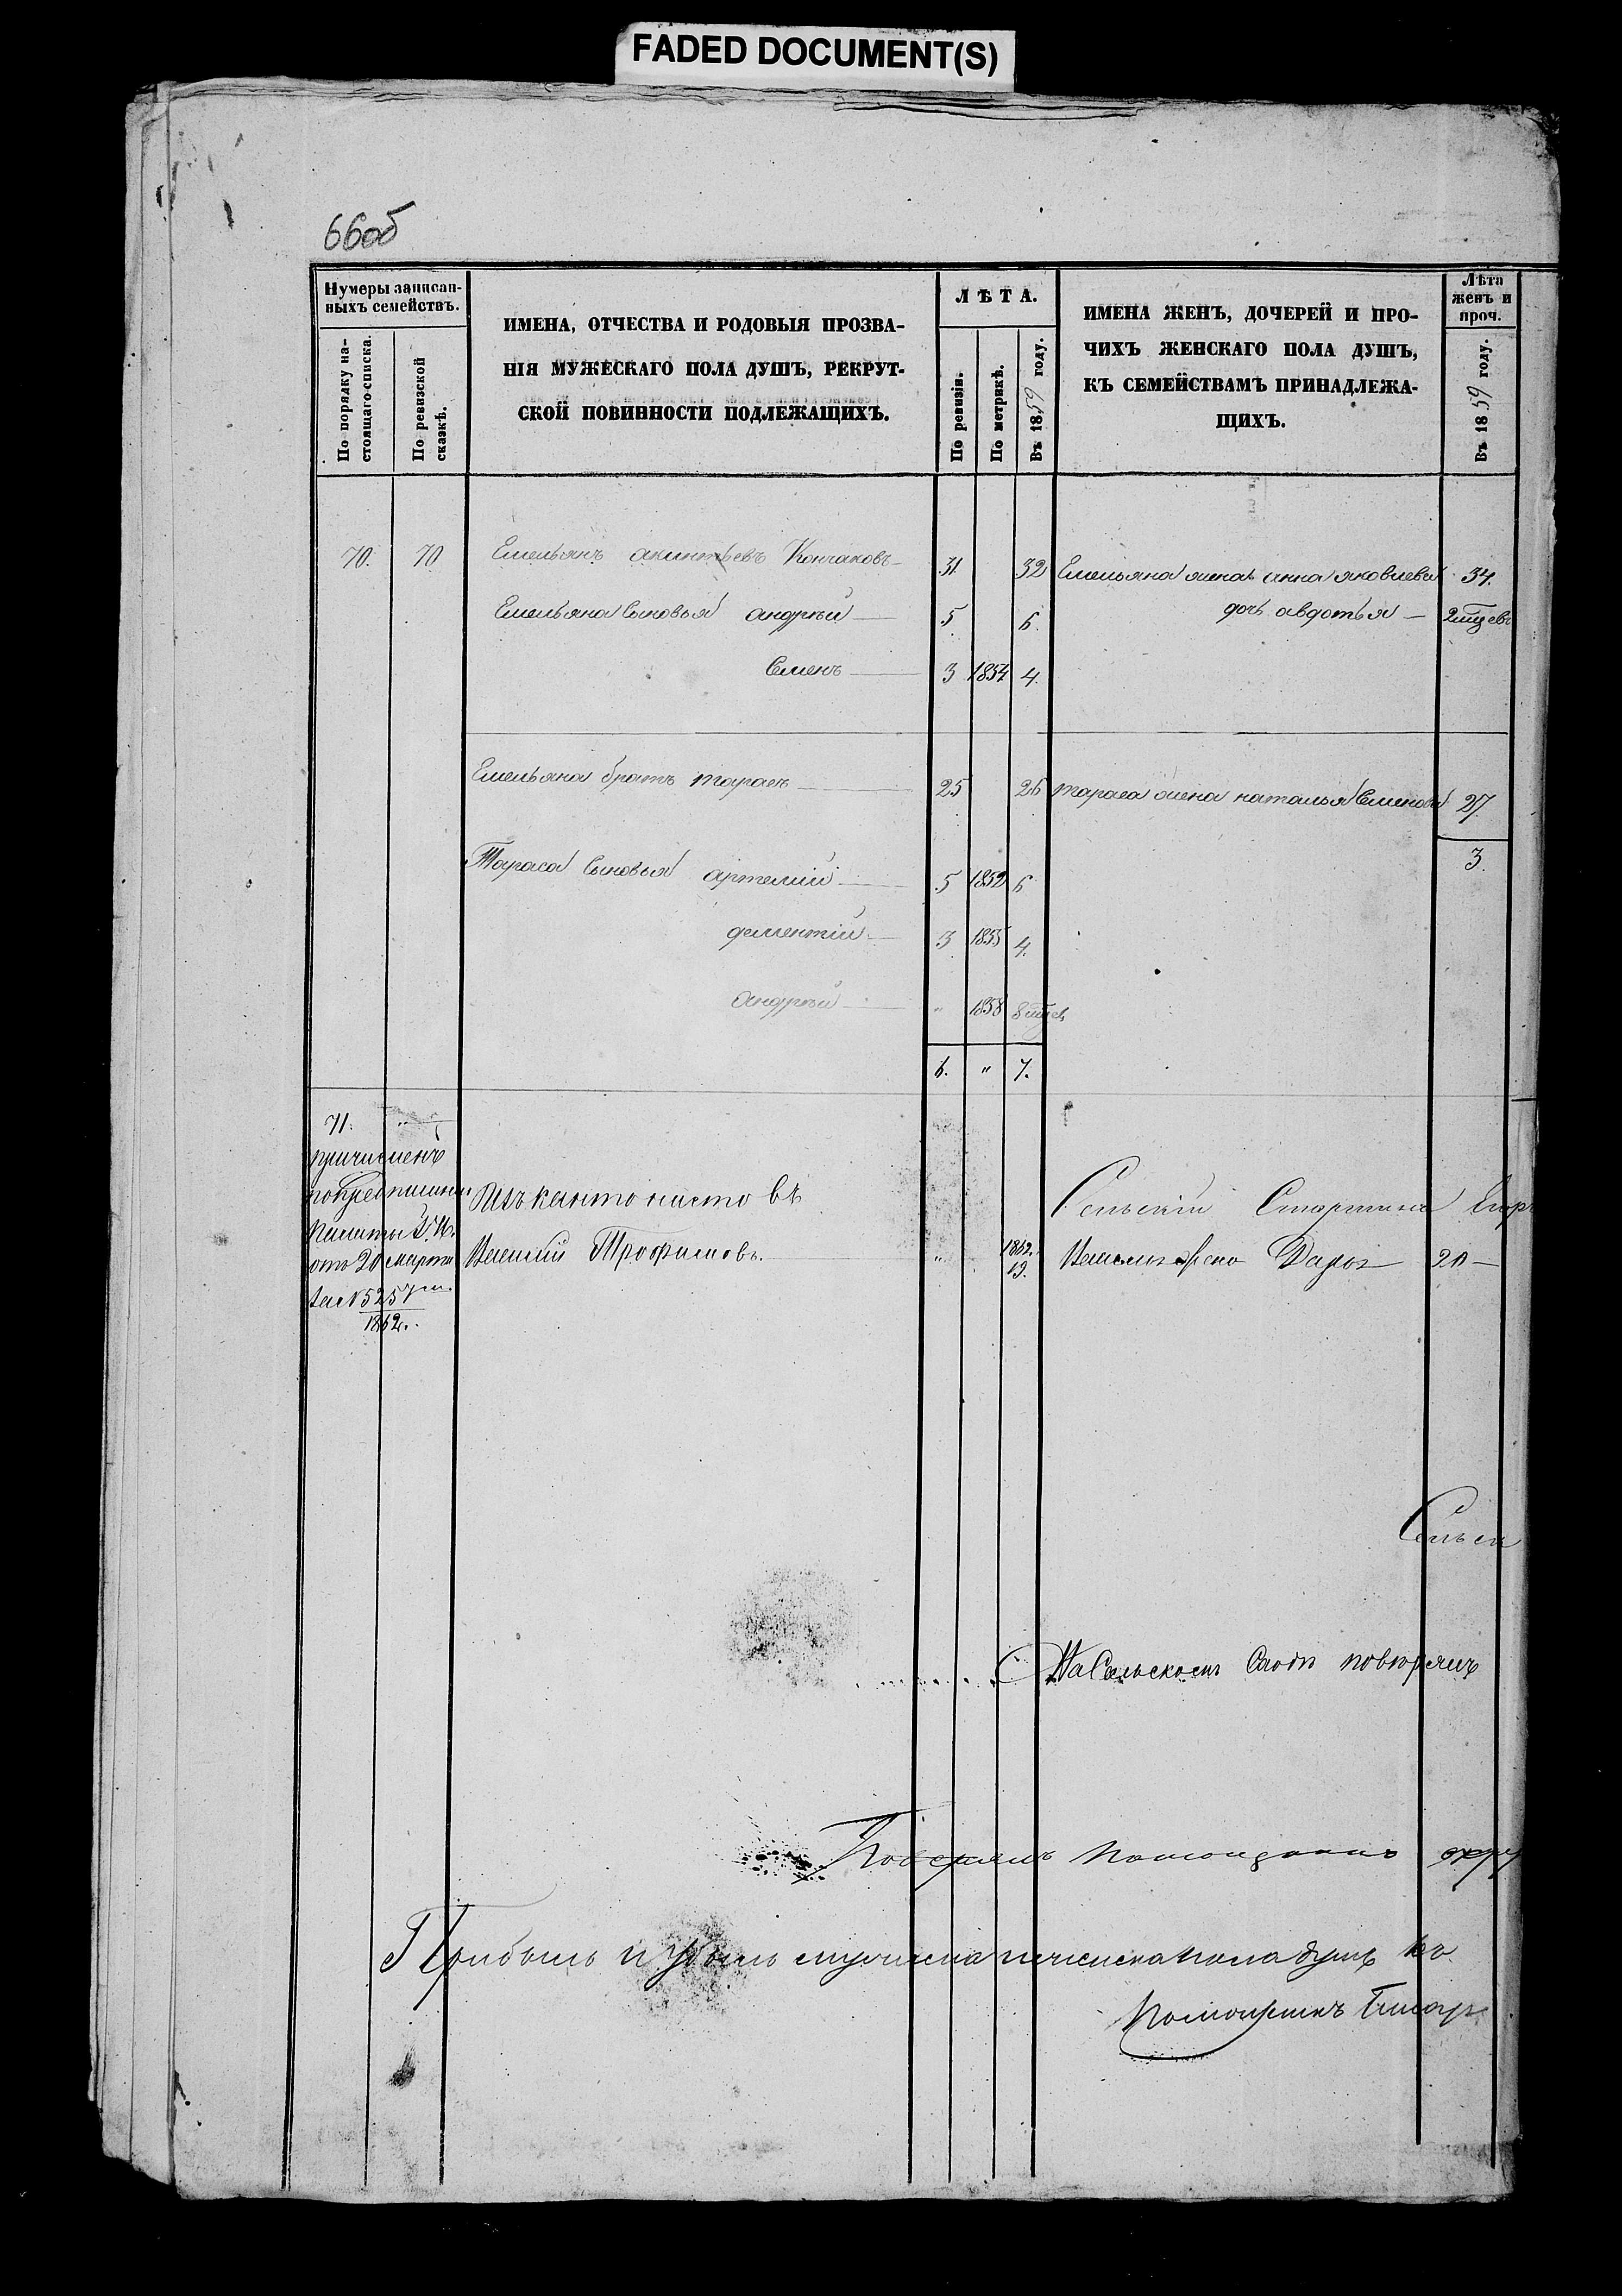 FADED DOCUMENT(S)
66об
Нумеры записан-
ныхъ семействъ.
По порядку на-
стоящаго списка.
По ревизской
сказкѣ.
ИМЕНА, ОТЧЕСТВА И РОДОВЫЯ ПРОЗВА-
НІЯ МУЖЕСКАГО ПОЛА ДУШЪ, РЕКРУТ-
СКОЙ ПОВИННОСТИ ПОДЛЕЖАЩИХЪ.
ЛѢТА.
По ревизіи.
По метрикѣ.
Въ 1859 году.
ИМЕНА ЖЕНЪ, ДОЧЕРЕЙ И ПРО-
ЧИХЪ ЖЕНСКАГО ПОЛА ДУШЪ,
КЪ СЕМЕЙСТВАМЪ ПРИНАДЛЕЖА-
ЩИХЪ.
Лѣта
женъ и
проч.
Въ 1859 году.
70. 70 Емельянъ акинтьевъ Кончаковъ 31 32 Емельяна жена анна яковлева 34.
Емельяна Сыновья андрѣй 5 6. дочь авдотья 2 мцев
Семенъ 3 1854 4.
Емельяна братъ тарасъ 25 26 тараса жена наталья Семенова 27
3.
Тараса Сыновья артемій 5 1852 6
дементій 3 1855 4.
андрѣй " 1858 8 мцев
6. " 7.
71. "
причисленъ
палаты Г. И.
отъ 20 марта
за №5257
1862.
Изъ кантонистовъ
Трофимовъ. " 1862. 19. жена Дарья 20
Сельскій Старшина
Сельск
На Сельскомъ Сходѣ повѣрялъ
Повѣрялъ Помощникъ окру
Прибыль и убыль мужеска и женска пола душъ по
Помощникъ